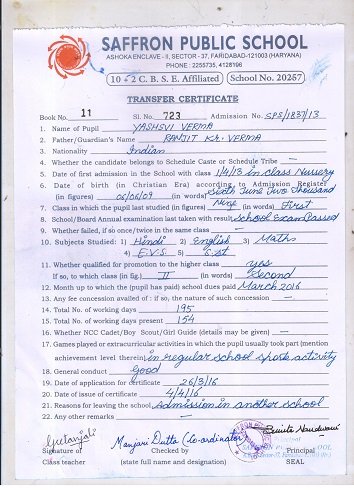 SAFFRON PUBLIC SCHOOL
ASHOKA ENCLAVE - II, SECTOR - 37, FARIDABAD-121003 (HARYANA)
PHONE : 2255735, 4128196
10 + 2 C. B. S. E. Affiliated School No. 20257
TRANSFER CERTIFICATE
Book No. 11 Sl. No. 723 Admission No. SPS/1837/13
1. Name of Pupil YASHSVI VERMA
2. Father/Guardian's Name RANJIT Kr. VERMA
3. Nationality Indian
4. Whether the candidate belongs to Schedule Caste or Schedule Tribe —
5. Date of first admission in the School with class 1/4/13 in class Nursery
6. Date of birth (in Christian Era) according to Admission Register
(in figures) 06/06/09 (in words) Sixth June Two Thousand Nine
7. Class in which the pupil last studied (in figures) I (in words) First
8. School/Board Annual examination last taken with result School Exam Passed
9. Whether failed, if so once/twice in the same class —
10. Subjects Studied: 1) Hindi 2) English 3) Maths
4) E.V.S. 5) S.st
11. Whether qualified for promotion to the higher class yes
If so, to which class (in fig.) II (in words) Second
12. Month up to which the (pupil has paid) school dues paid March 2016
13. Any fee concession availed of : if so, the nature of such concession —
14. Total No. of working days 195
15. Total No. of working days present 154
16. Whether NCC Cadet/Boy Scout/Girl Guide (details may be given) —
17. Games played or extracurricular activities in which the pupil usually took part (mention
achievement level therein) in regular school sports activity
18. General conduct good
19. Date of application for certificate 26/3/16
20. Date of issue of certificate 4/4/16
21. Reasons for leaving the school Admission in another school
22. Any other remarks —
Geetanjali Manjari Dutta (Co-ordinator)
Signature of Checked by Principal
Class teacher (state full name and designation) SEAL